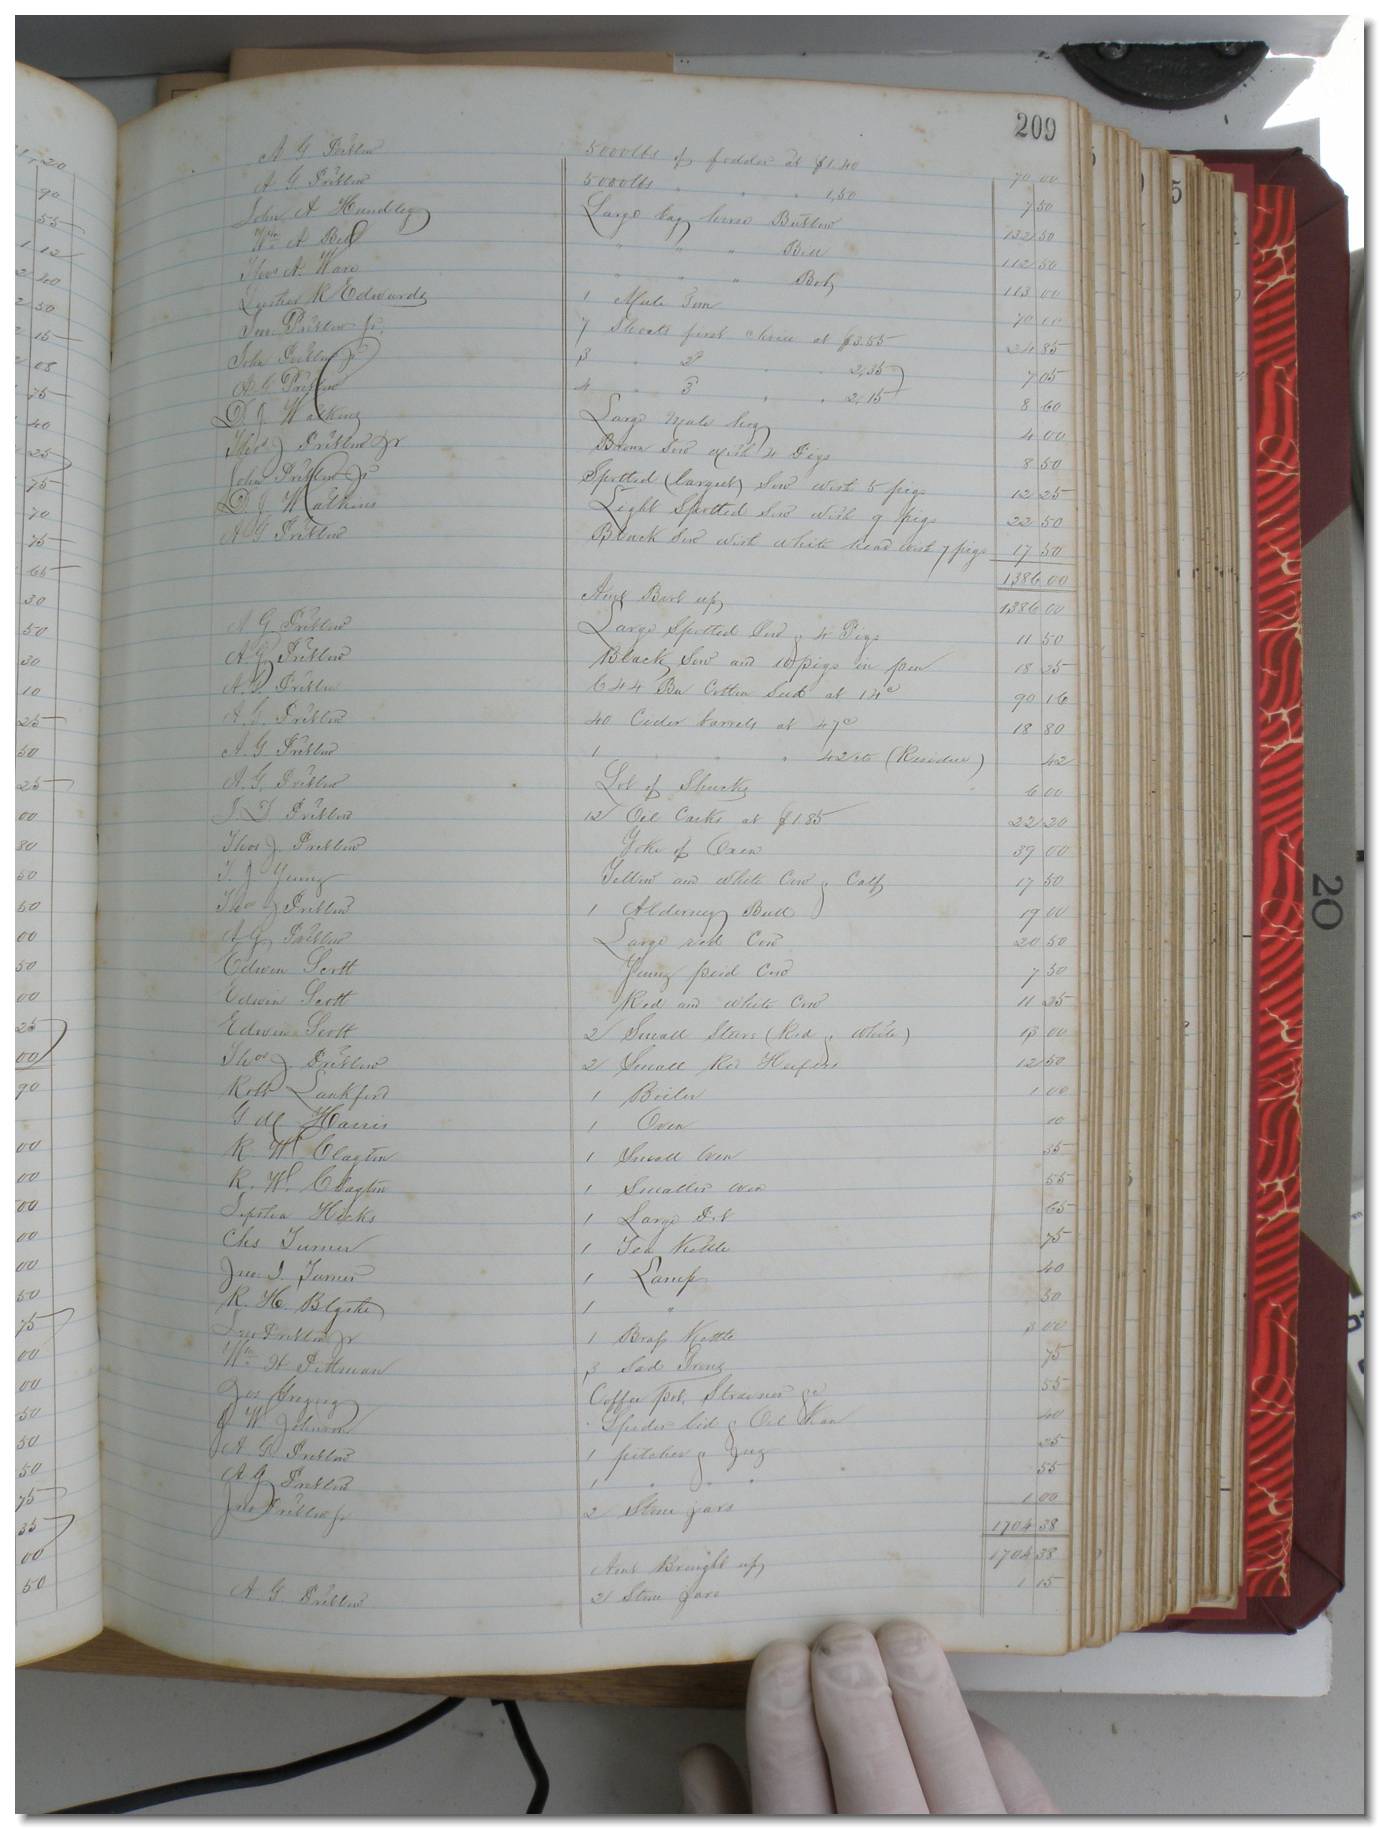 209
A G Pretlow 5000lbs of fodder at $1.40 70 00
A G Pretlow 5000lbs " " " 1,50 7 50
John A Hundley Large bay horse Button 132 50
Wm A Bell " " " Bill 112 50
Thos A. Ware " " " Bob 113 00
R Edwards 1 Mule Tom 70 00
Jno. Pretlow Jr. 7 Shoats first choice at $3.55 24 85
John Pretlow Jr 3 " 2d " " 2,35 7 05
A G Pretlow 4 " 3 " " 2,15 8 60
D. J. Watkins Large male hog 4 00
Thos J Pretlow Jr Brown Sow with 4 Pigs 8 50
John Pretlow Jr Spotted (largest) Sow with 5 pigs 12 25
D. J. Watkins Light Spotted Sow with 9 pigs 22 50
A G Pretlow Black Sow with white head with 7 pigs 17 50
1386 00
Amt Brot up 1386 00
A G Pretlow Large Spotted Sow & 4 Pigs 11 50
A. G Pretlow Black Sow and 10 pigs in pen 18 25
A. G. Pretlow 644 Bu Cotton Seed at 14c 90 16
A. G. Pretlow 40 Cider barrels at 47c 18 80
A. G Pretlow 1 " " " 42cts (Residue) 42
A. G. Pretlow Lot of Shucks 6 00
J. T. Pretlow 12 Oil Casks at $1.85 22 20
Thos J. Pretlow Yoke of Oxen 39 00
T. J. Young Yellow and white Cow & Calf 17 50
Thos J Pretlow 1 Alderney Bull 19 00
A. G. Pretlow Large red Cow 20 50
Edwin Scott Young pied Cow 7 50
Edwin Scott Red and white Cow 11 25
Edwin Scott 2 Small Steers (Red & white) 13 00
Thos J. Pretlow 2 Small Red Heifers 12 50
Robt Lankford 1 Boiler 1 00
G M Harris 1 Oven 10
R. W Clayton 1 Small Oven 35
R. W. Clayton 1 Smaller Oven 55
Hicks 1 Large Pot 65
Chs Turner 1 Tea Kettle 75
Jno. I. Turner 1 Lamp 40
R. H. Blythe 1 " 50
Jno Pretlow Jr 1 Brass Kettle 3 00
Wm H Pittman 3 Sad Irons 75
Jos Gregory Coffee pot, Strainer &c 55
J W Johnson Spider lid & Oil Can 40
A G Pretlow 1 pitcher & Jug 25
A. G Pretlow 1 " " " 55
Jno Pretlow Jr 2 Stone jars 1 00
1704 38
Amt Brought up 1704 38
A. G. Pretlow 2 Stone jars 1 15
20